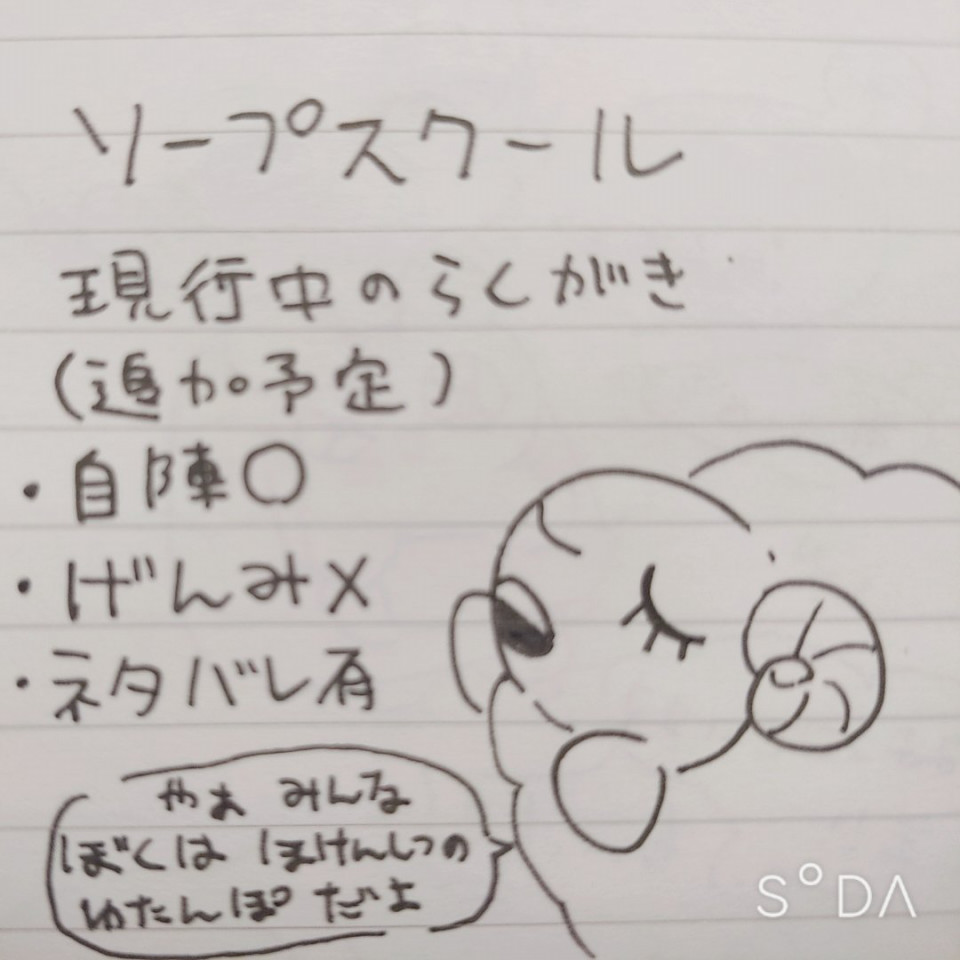 ソープスクール
現行中のらくがき
(追加予定)
・自陣〇
・げんみ×
・ネタバレ有
やぁ みんな
ぼくは ほけんしつの
ゆたんぽ だよ
SODA